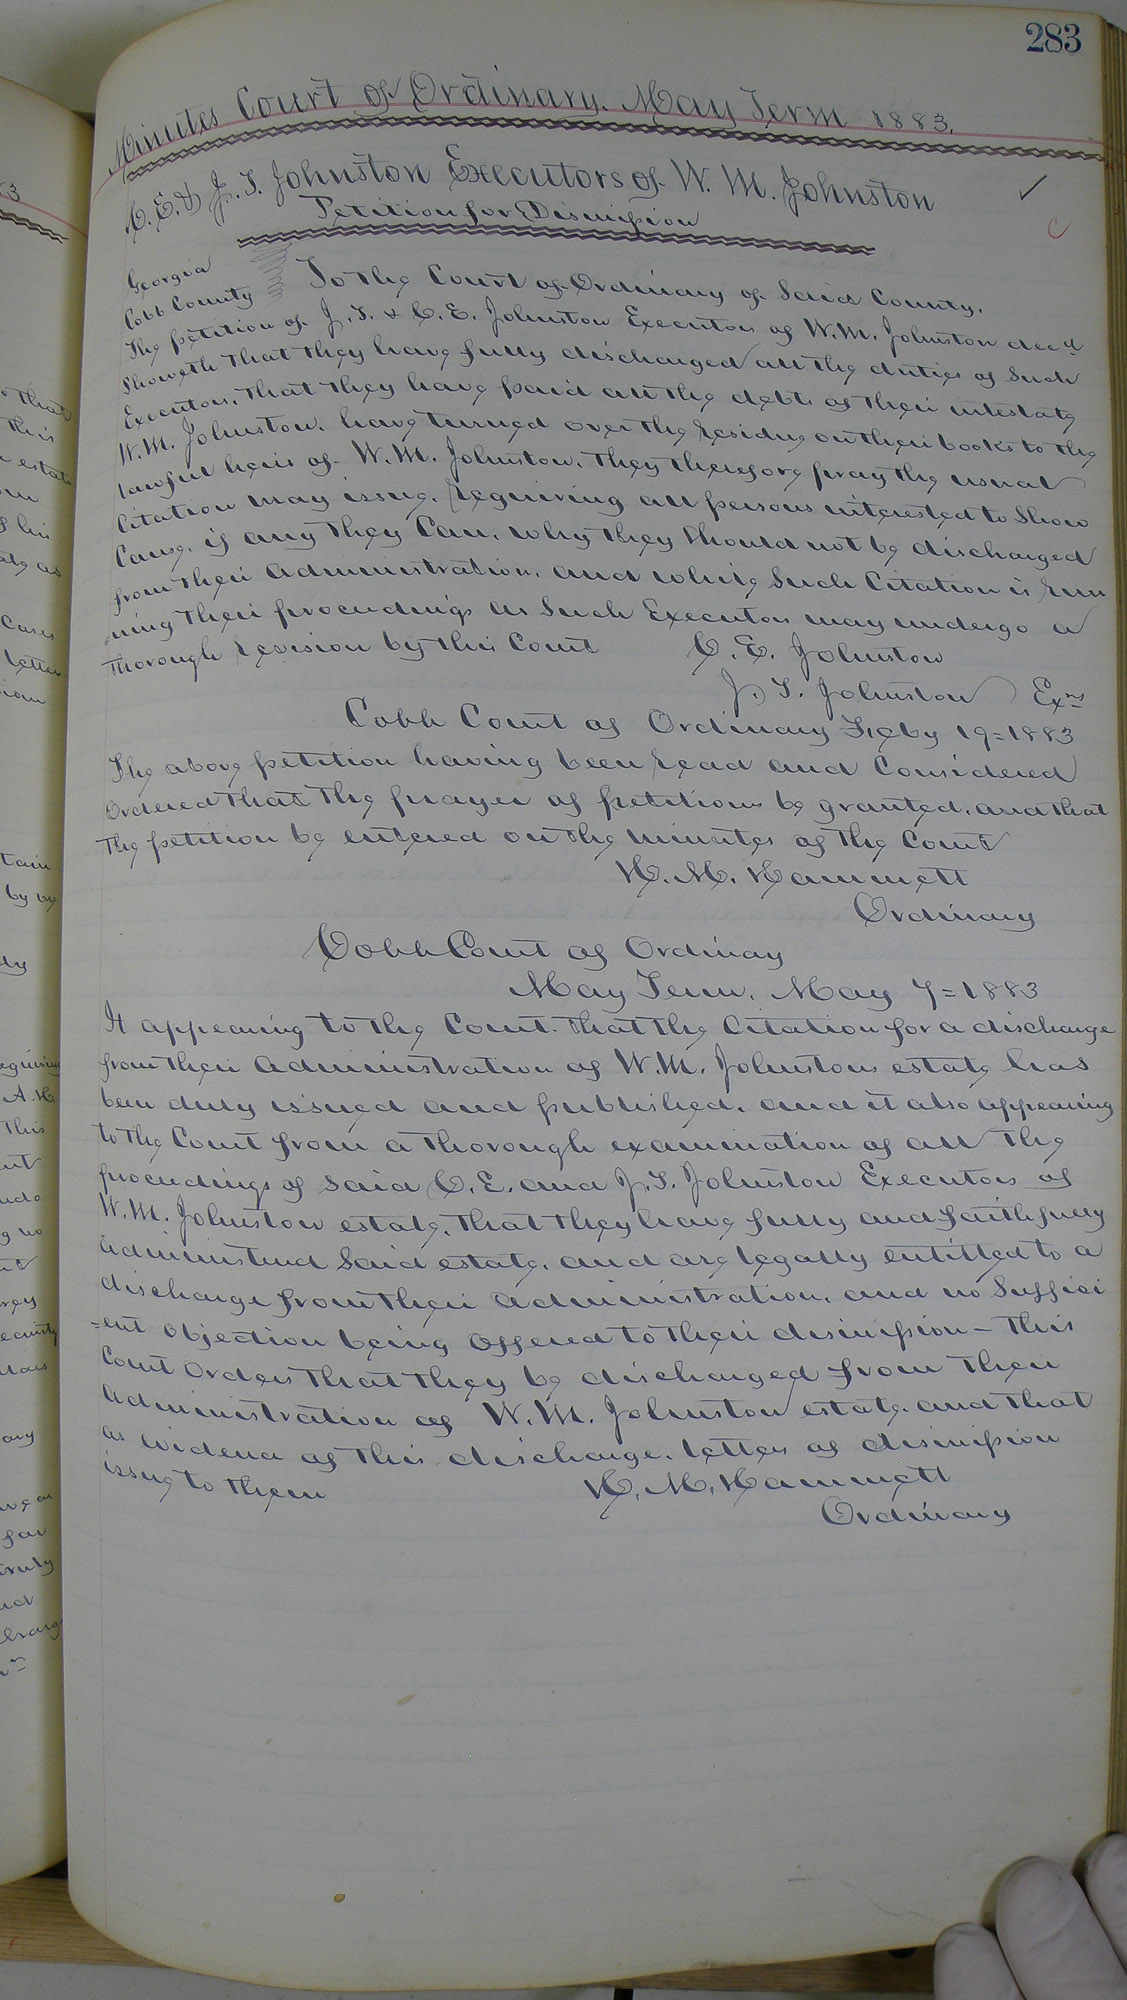 283
Minutes Court of Ordinary. May Term 1883.
C. E. & J. T. Johnston Executors of W. M. Johnston
Petition for Dismission
Georgia
Cobb County
To the Court of Ordinary of Said County.
The petition of J. T. & C. E. Johnston Executors of W. M. Johnston decd
Showeth that they have fully discharged all the duties of Such
Executors, that they have paid all the debts of their intestate
W. M. Johnston. have turned over the residue on their books to the
lawful heirs of W. M. Johnston. They therefore pray the usual
Citation may issue. requiring all persons interested to Show
Cause. if any they Can. why they Should not be discharged
from their Administration. and while Such Citation is run
ning their proceedings as Such Executors may undergo a
thorough revision by this Court
C. E. Johnston
J. T. Johnston Exrs
Cobb Court of Ordinary Feby 19=1883
The above petition having been read and Considered
Ordered that the prayer of petitions be granted. and that
the petition be entered on the minutes of the Court
H. M. Hammett
Ordinary
Cobb Court of Ordinay
May Term. May 7=1883
It appearing to the Court. that the Citation for a discharge
from their Administration of W. M. Johnstons estate has
been duly issued and published. and it also appearing
to the Court from a thorough examination of all the
proceedings of Said C. E. and J. T. Johnston Executors of
W. M. Johnston estate. that they have fully and faithfully
administered Said estate. and are legally entitled to a
discharge from their Administration. and no Suffici
=ent objection being offered to their dismission – this
Court Orders that they be discharged from their
Administration of W. M. Johnston estate. and that
as evidence of this discharge. letters of dismission
issue to them
H. M. Hammett
Ordinary